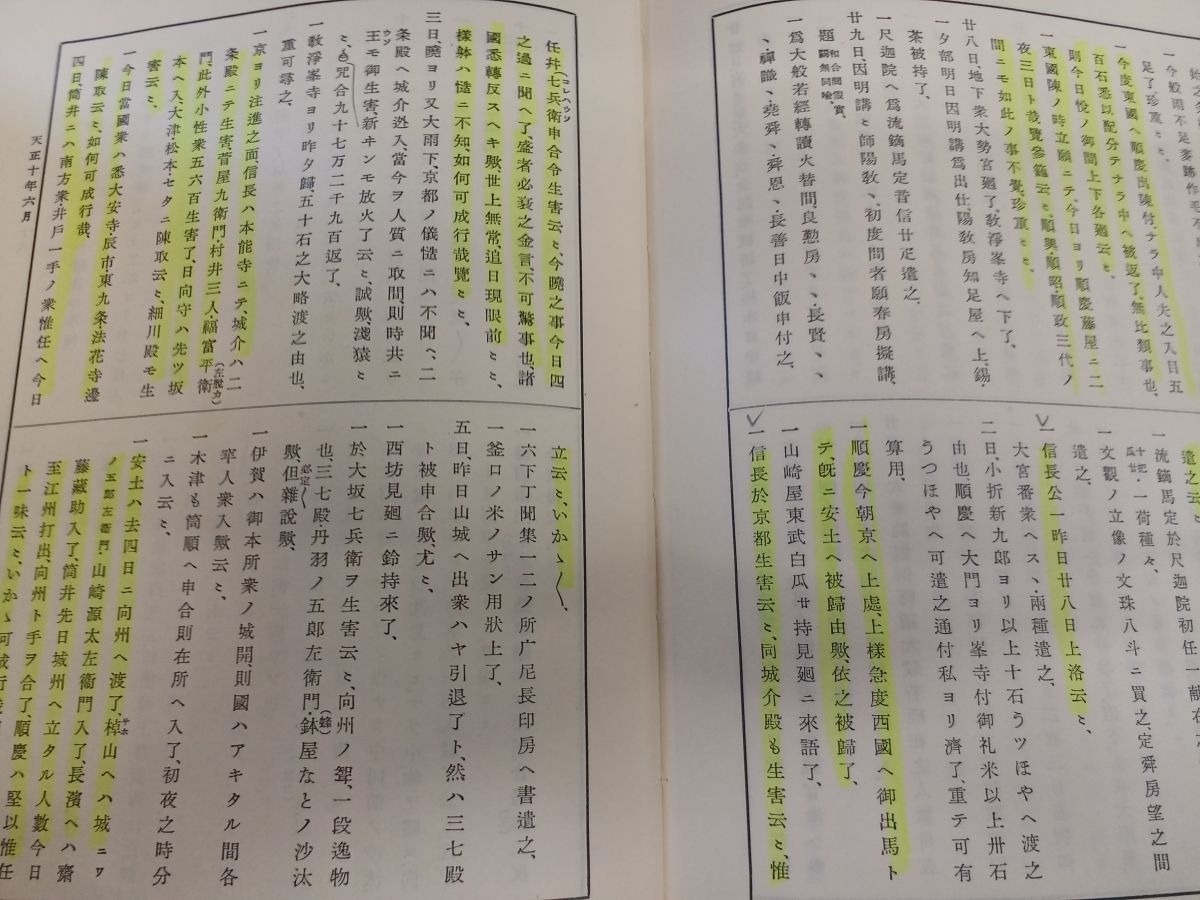 一今般雨不足麥跡作毛不
足了、珍重〻〻、
一今度東國ヘ順慶出陳付、ナラ中人夫之入目五
百石悉以配分、テナラ中ヘ被返了、無比類事也、
則今日悅ノ御間上下各廻云〻、
一東國陳ノ時立願ニテ、今日ヨリ順慶藤屋ニ二
夜三日ト哉覽參籠云〻、順興・順昭・順政三代ノ
間ニモ如此ノ事不覺、珍重〻〻、
廿八日、地下衆大勢宮廻了、敎淨峯寺ヘ下了、
一夕部明日因明講爲出仕、陽敎房知足屋ヘ上、錫・
茶被持了、
一尺迦院ヘ爲流鏑馬定音信廿疋遣之、
廿九日、因明講〻師陽敎〻、初度問者願春房擬講、
題
一爲大般若經轉讀火替間、良懃房〻、〻・長賢〻、〻
〻・禪識〻・堯舜〻・舜恩〻・長善日中飯申付之、
遣之云〻、
一流鏑馬定於尺迦院初任一獻在
瓜廿、十把・一荷種々、
一文觀ノ立像ノ文珠八斗ニ買之、定舜房望之間
遣之、
一信長公一昨日廿八日上洛云〻、
大宮番衆ヘス〻・兩種遣之、
二日、小折新九郎ヨリ以上十石うツほやヘ渡之
由也、順慶ヘ大門ヨリ峯寺付御礼米以上卅石
うつほやヘ可遣之通付私ヨリ濟了、重テ可有
算用、
一順慶今朝京ヘ上處、上樣急度西國ヘ御出馬ト
テ、既ニ安土ヘ被歸由歟、依之被歸了、
一山崎屋東武白瓜廿持見廻ニ來語了、
一信長於京都生害云〻、同城介殿も生害云〻、惟
任幷七兵衛申合令生害云〻、今曉之事今日四
之過ニ聞ヘ了、盛者必衰之金言、不可驚事也、諸
國悉轉反スヘキ歟、世上無常、追日現眼前〻〻、
樣躰ハ慥ニ不知、如何可成行哉覽〻〻、
三日、曉ヨリ又大雨下、京都ノ儀慥ニハ不聞ヘ、二
条殿ヘ城介迯入、當今ヲ人質ニ取間、則時共ニ
王モ御生害、新ヰンモ放火了云〻、誠歟淺猿〻
〻、も咒合九十七万二千九百返了、
一敎淨峯寺ヨリ昨夕歸、五十石之大略渡之由也、
重可尋之、
一京ヨリ注進之面、信長ハ本能寺ニテ、城介ハ二
条殿ニテ生害、菅屋九衛門・村井三人・福富平衛
(左脫カ)
門、此外小性衆五六百生害了、日向守ハ先ツ坂
本ヘ入、大津・松本・セタニ陳取云〻、細川殿モ生
害云〻、
一今日當國衆ハ悉大安寺・辰市・東九条・法花寺邊
陳取云〻、如何可成行哉、
四日、筒井ニハ南方衆・井戶一手ノ衆惟任ヘ今日
天正十年六月
立云〻、いかゝゝゝ、
一六下丁聞集一二ノ所广尼長印房ヘ書遣之、
一釜口ノ米ノサン用狀上了、
五日、昨日山城ヘ出衆ハヤ引退了ト、然ハ三七殿
ト被申合歟、尤〻、
一西坊見廻ニ鈴持來了、
一於大坂七兵衛ヲ生害云〻、向州ノ聟、一段逸物
也、三七殿・丹羽ノ五郎左衛門・鉢屋なとノ沙汰
(蜂)
歟、但雜說歟、
必定
一伊賀ハ御本所衆ノ城開、則國ハアキタル間各
窂人衆入歟云〻、
一木津も筒順ヘ申合則在所ヘ入了、初夜之時分
ニ入云〻、
一安土ハ去四日ニ向州ヘ渡了、棹山ヘハ城ニワ
サホ
ノ五郎左衛門・山崎源太左衛門入了、長濱ヘハ齋
藤藏助入了、筒井先日城州ヘ立タル人數今日
至江州打出、向州ト手ヲ合了、順慶ハ堅以惟任
ト一味云〻、いかゝ可成行